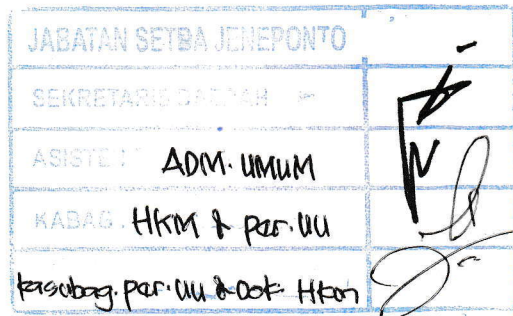 JABATAN SETDA JENEPONTO
SEKRETARIS DAERAH
ASISTEN ADM. UMUM
KABAG. HKM & per. UU
kasubag. per. UU & Dok. Hkm